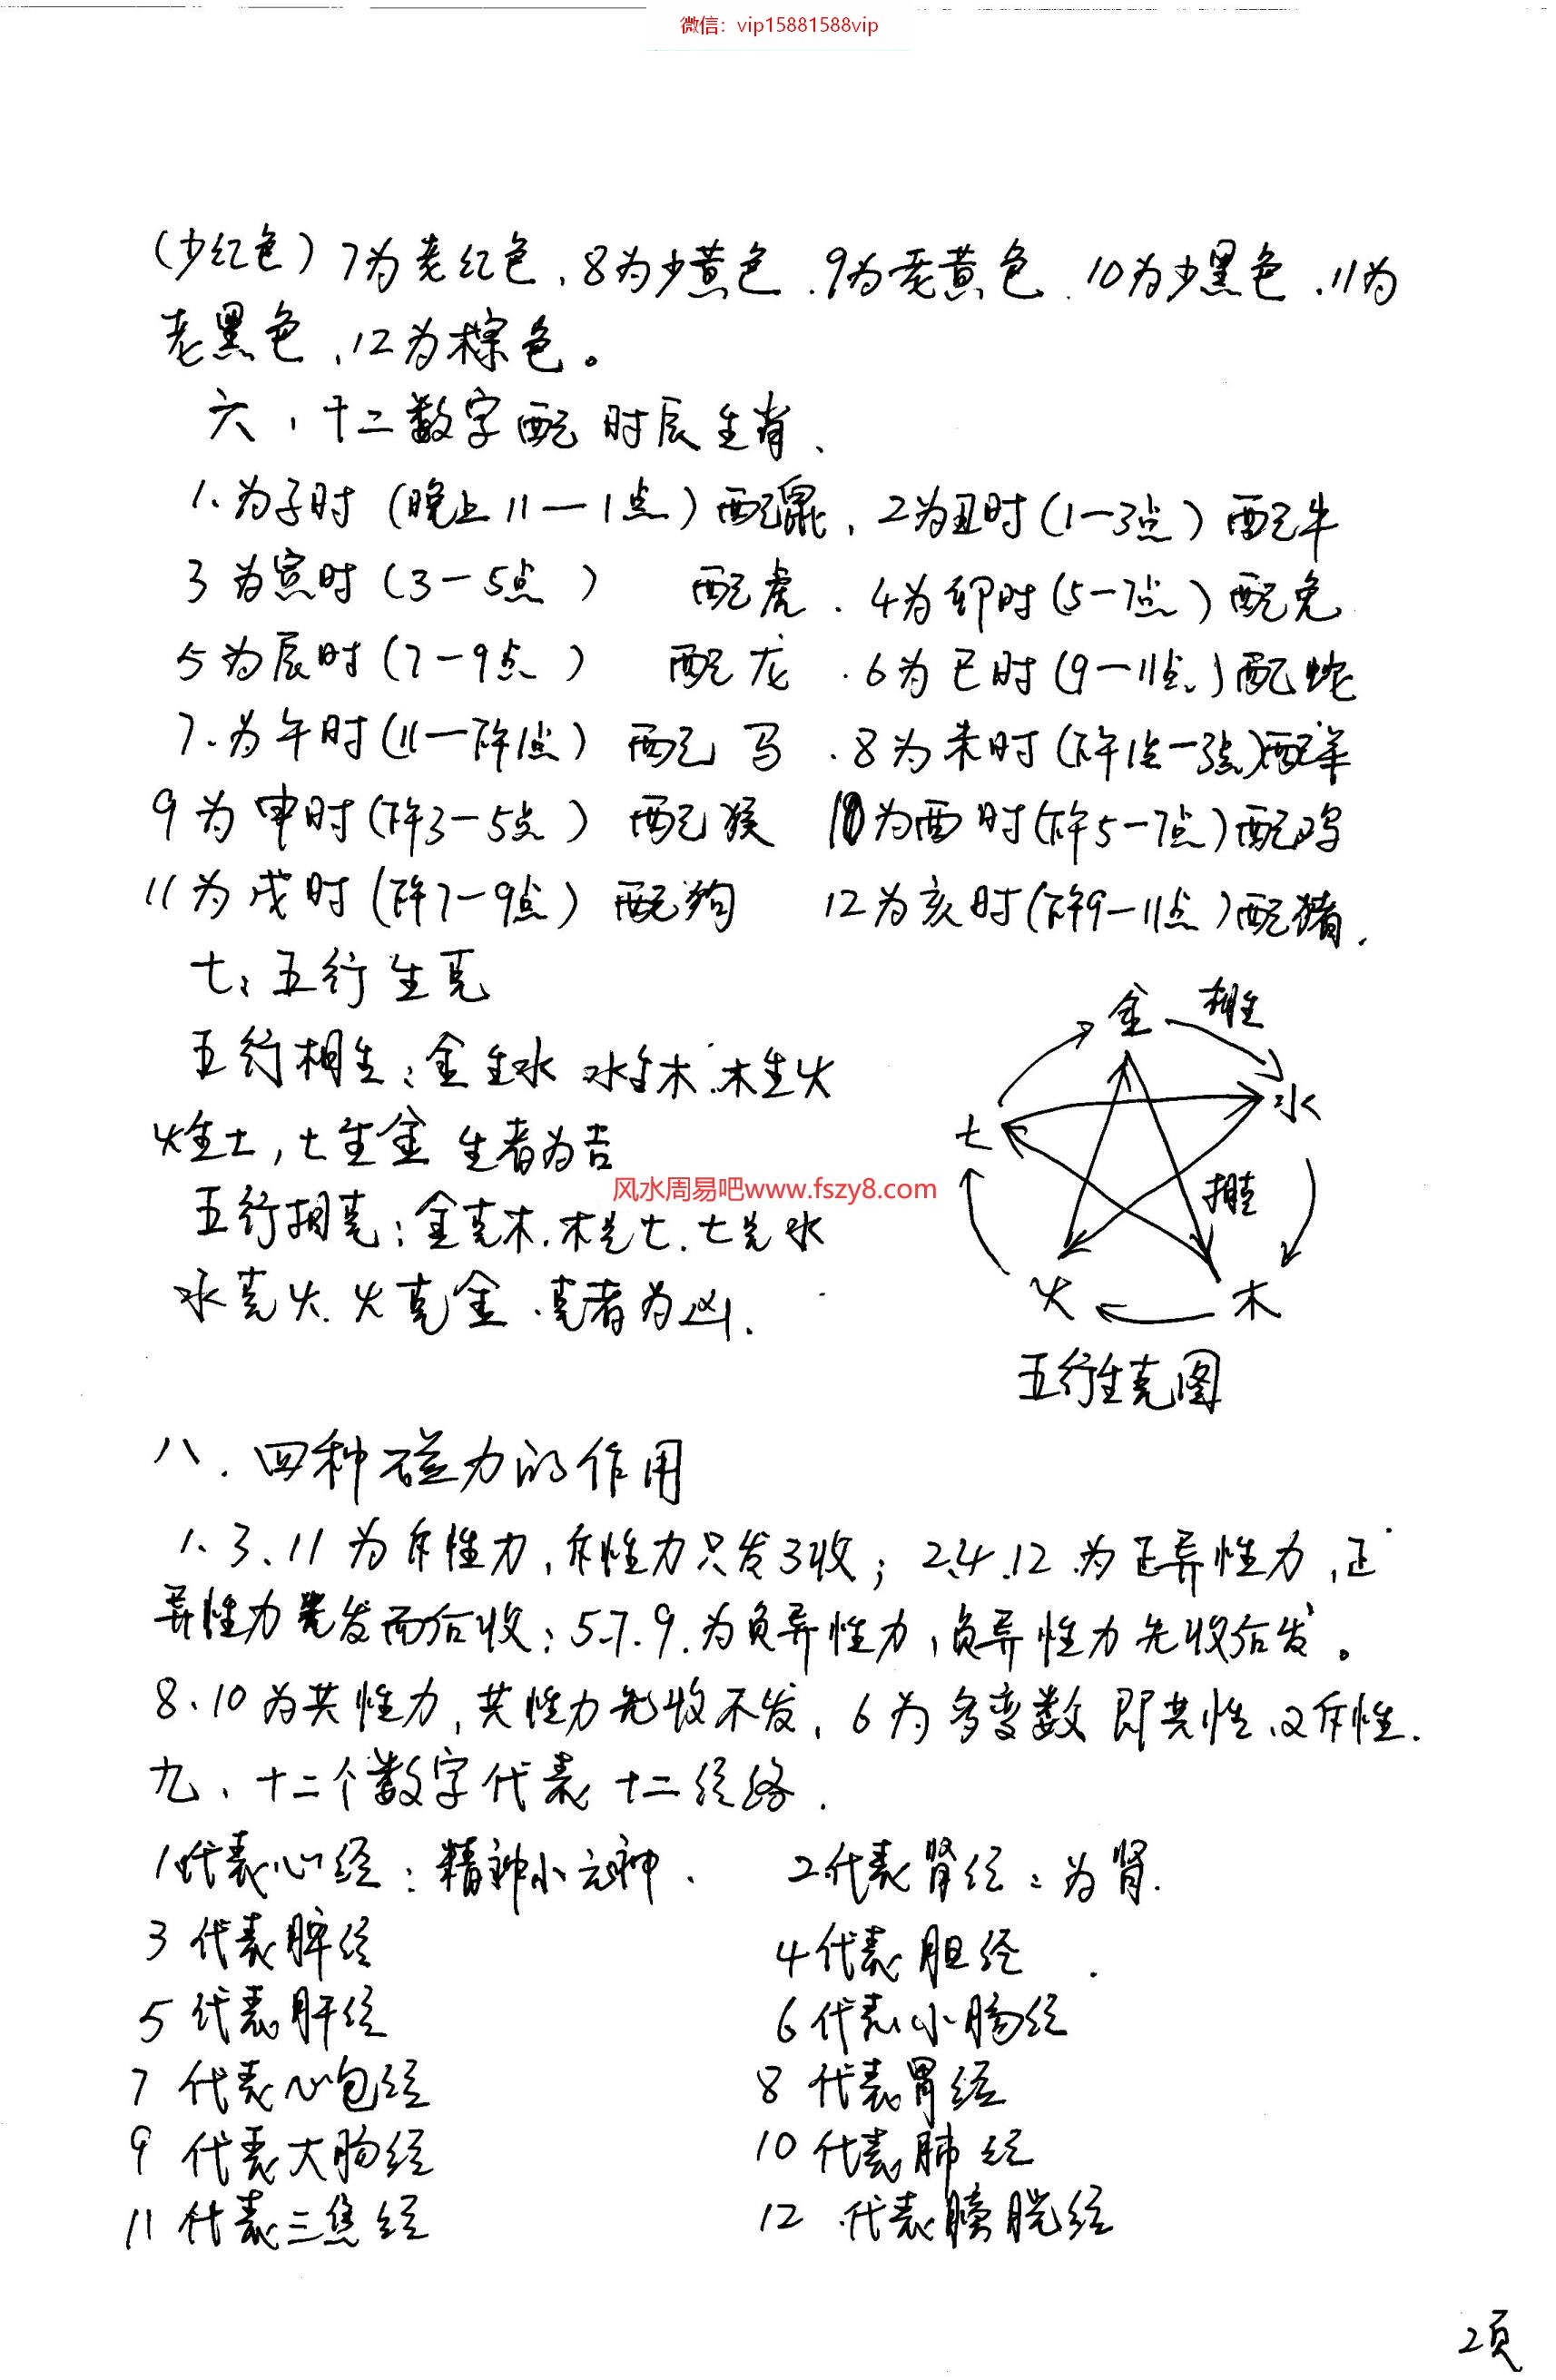 微信：vip15881588vip
(少红色) 7为老红色、8为少黄色、9为老黄色、10为少黑色、11为
老黑色、12为棕色。
六、十二数字配时辰生肖、
1、为子时 (晚上11一1点) 配鼠、2为丑时 (1一3点) 配牛
3为寅时 (3一5点) 配虎、4为卯时 (5一7点) 配兔
5为辰时 (7一9点) 配龙、6为巳时 (9一11点) 配蛇
7、为午时 (11一下午1点) 配马、8为未时 (下午1点一3点) 配羊
9为申时 (下午3一5点) 配猴 10为酉时 (下午5一7点) 配鸡
11为戌时 (下午7一9点) 配狗 12为亥时 (下午9一11点) 配猪、
七、五行生克
五行相生：金生水 水生木、木生火
火生土，土生金 生者为吉
五行相克：金克木、木克土、土克水
水克火、火克金、克者为凶、
金 相生
水
土
相克
火 木
五行生克图
风水周易吧www.fszy8.com
八、四种磁力的作用
1、3、11为斥性力、斥性力只发不收；2、4、12、为正异性力、正
异性力先发而后收；5、7、9、为负异性力，负异性力先收后发。
8、10为共性力，共性力先收不发，6为多变数 即共性、又斥性.
九、十二个数字代表十二经络.
1代表心经：精神小元神、 2代表肾经：为肾.
3代表脾经 4代表胆经
5代表肝经 6代表小肠经
7代表心包经 8代表胃经
9代表大肠经 10代表肺经
11代表三焦经 12代表膀胱经
2页